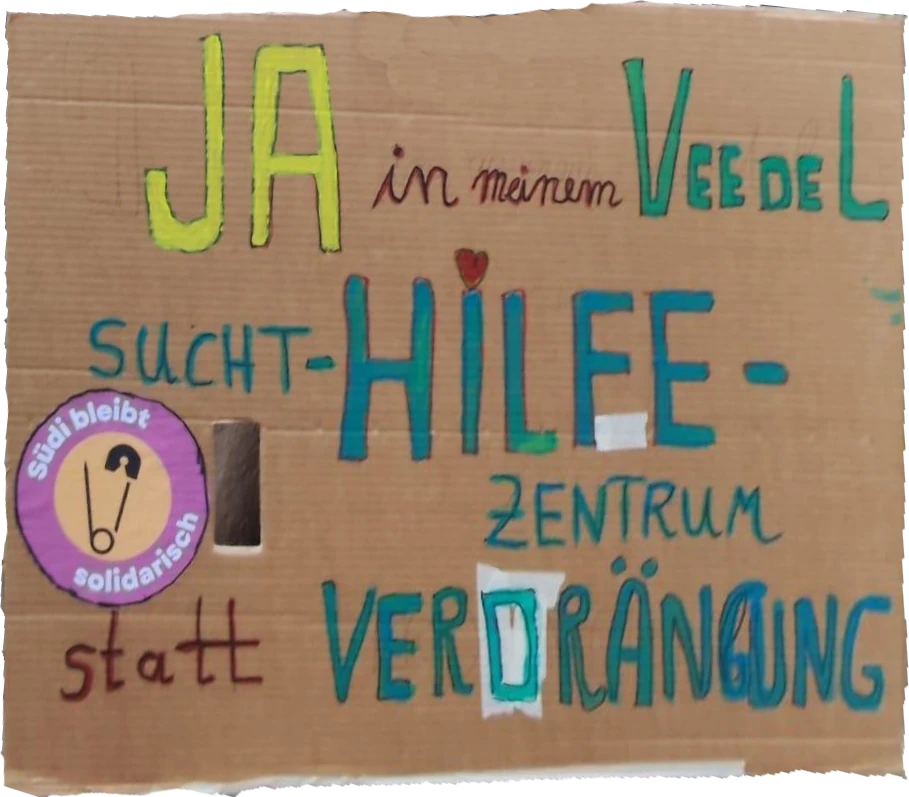 JA in meinem VEEDEL
SUCHT-HILFE-
ZENTRUM
statt VERDRÄNGUNG
Südi bleibt
solidarisch